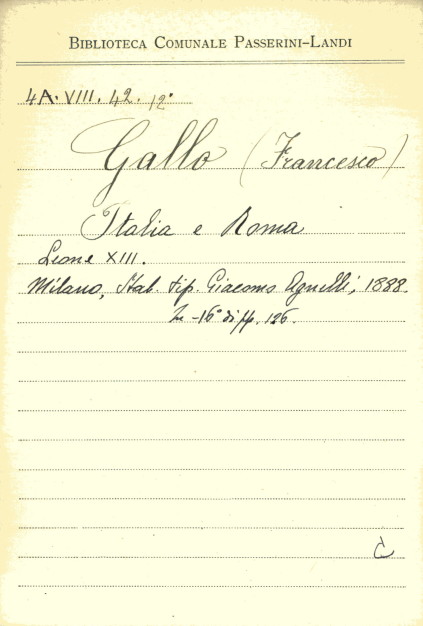 BIBLIOTECA COMUNALE PASSERINI-LANDI
4A. VIII. 42. 12°
Gallo (Francesco)
Italia e Roma
Leone XIII.
Milano, Stab. tip. Giacomo Agnelli, 1888.
In-16° di pp. 126.